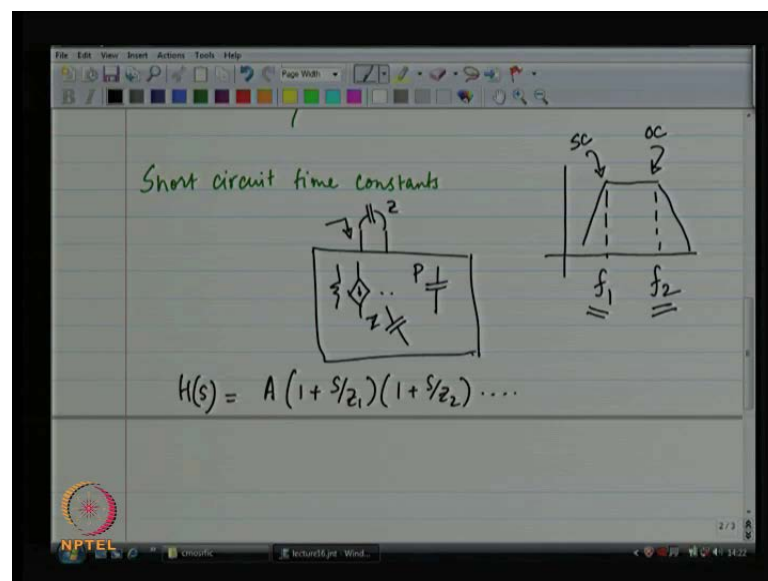 File Edit View Insert Actions Tools Help
Page Width
B I
Short circuit time constants
SC OC
Z
P
Z
f₁ f₂
H(s) = A (1 + S/Z₁)(1 + S/Z₂) ....
2/3
NPTEL
cmosrfic lecture16.jnt - Wind...
14:22